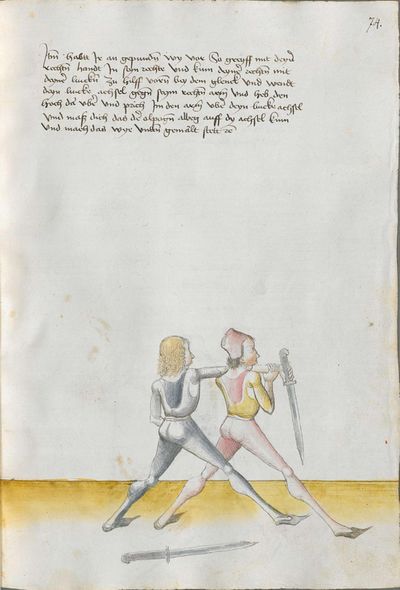 74.
Itm habtt Ir an gepundn wy vor So greyff mit deyner
rechtn handt In seyn rechte vnd kum deyner rechtn mit
deyner linckn zu hilff vorn bey dem glenck vnd wendt
deyn lincke achsel gegn seym rechtn arm vnd heb den
hoch vber vnd prich Im den arm vber deyn lincke achsel
vnd dich das der elpogn albeg auff dy achsel kum
vnd mach das wye vnttn gemalt stett